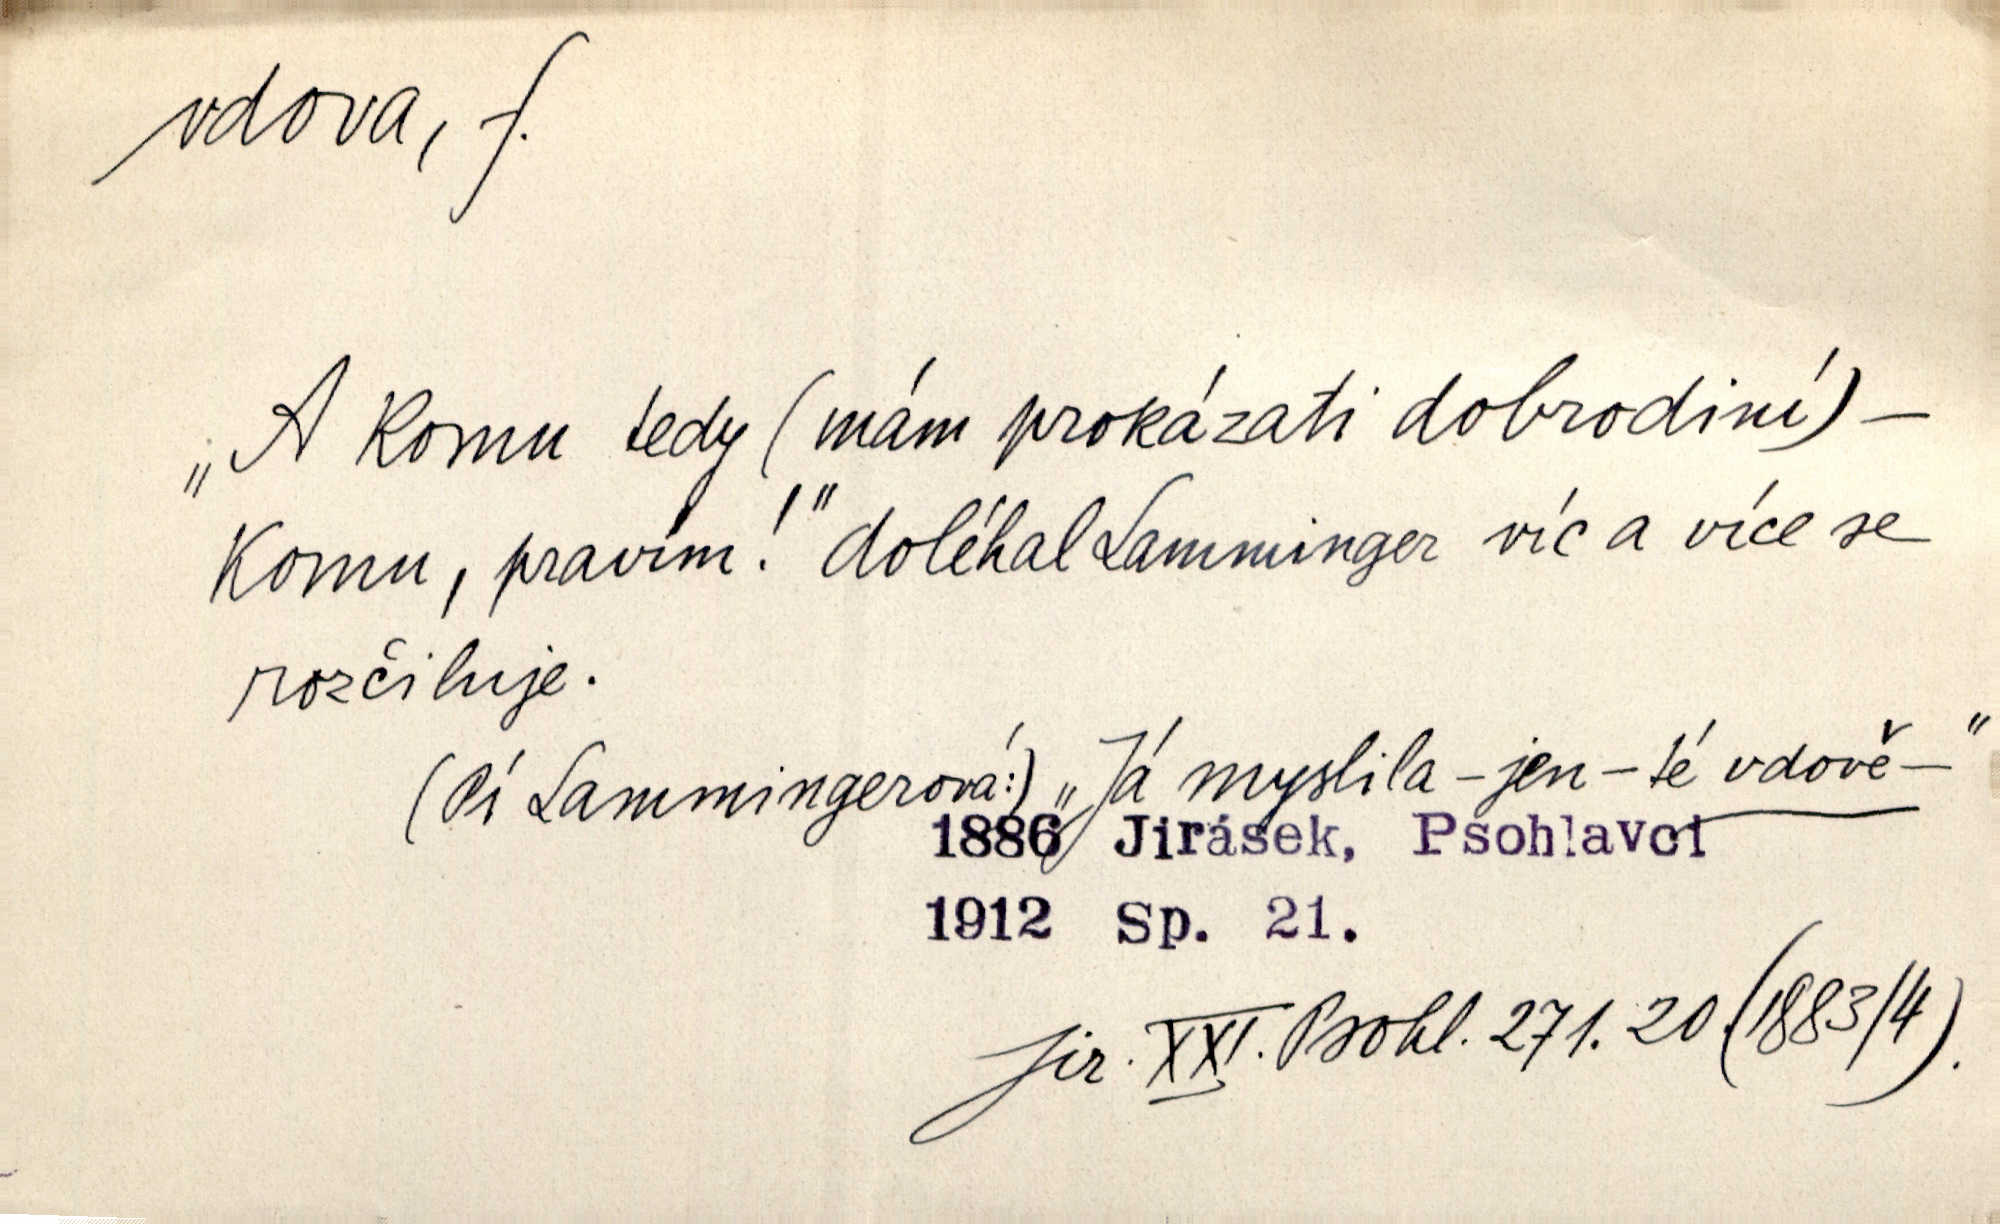 vdova, f.
„A komu tedy (mám prokázati dobrodiní) –
komu, pravím!" doléhal Lamminger víc a více se
rozčiluje.
(Pí Lammingerová:) „Já myslila – jen – té vdově – "
1886 Jirásek, Psohlavci
1912 Sp. 21.
Jir. XXI. Psohl. 271. 20 (1883/4).